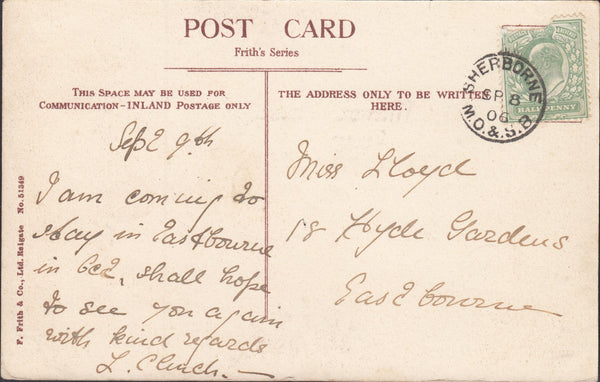 POST CARD
Frith's Series
THIS SPACE MAY BE USED FOR
COMMUNICATION-INLAND POSTAGE ONLY
THE ADDRESS ONLY TO BE WRITTEN
HERE.
SHERBORNE
SP 8
06
M.O.&S.B
HALFPENNY
Sept 9th
I am coming to
stay in Eastbourne
in Oct, shall hope
to see you again
with kind regards
L. Clinch.
Miss Lloyd
18 Hyde Gardens
Eastbourne
F. Frith & Co., Ltd. Reigate No. 51349